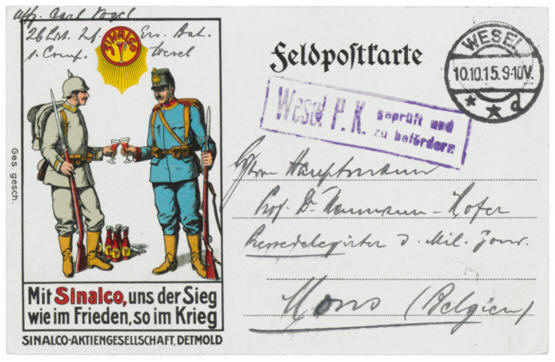 Uffz. Carl Vogel
26 Ldst. Inf. Ers. Bat.
1. Comp. Wesel
SINALCO
Ges. gesch.
Mit Sinalco, uns der Sieg
wie im Frieden, so im Krieg
SINALCO-AKTIENGESELLSCHAFT, DETMOLD
Feldpostkarte
WESEL
10.10.15.9-10V.
* * d
Wesel P. K. geprüft und
zu befördern
Hauptmann
Prof. Dr. Naumann-Hofer
Pressedelegierter d. Mil. Gouv.
Mons (Belgien)